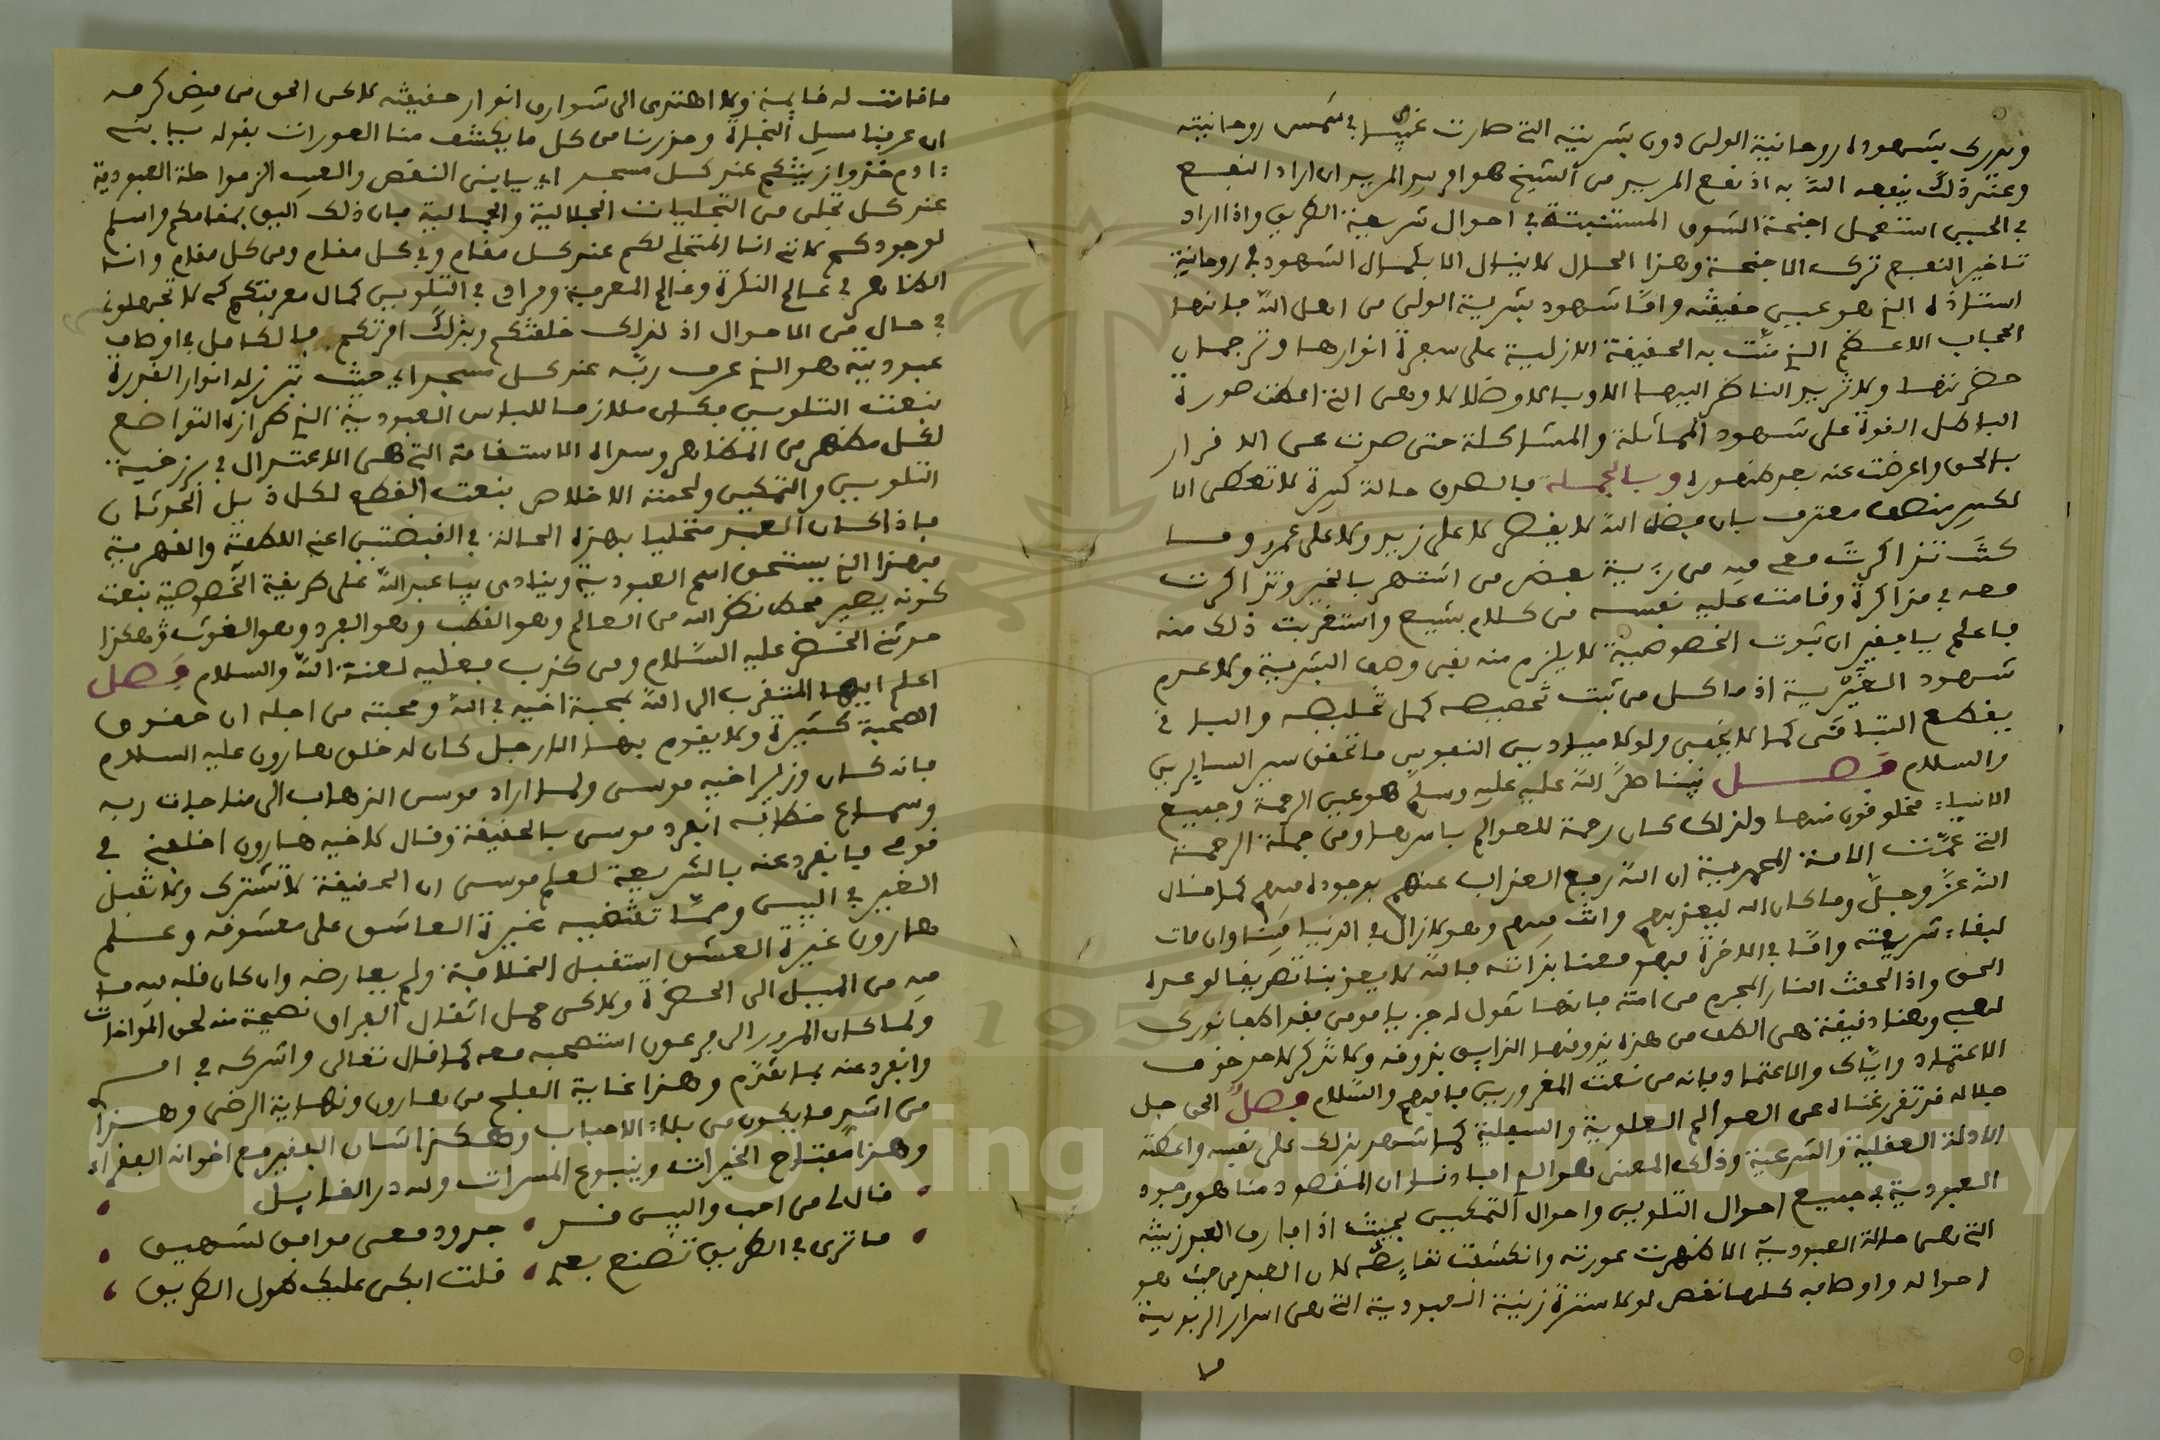 وندرى بشهوده روحانية الولى دون بشريته التى صارت غيبا في شمس روحانيته
وعند ذلك ينفعه الله به اذ نفع المريد من الشيخ هو اوبد المريد ان اراد النفع
في الحين استعمل اجنحة الشوق المستنبتة في احوال شريعة الطريق واذا اراد
تاخير النفع ترك الاجنحة وهذا الحال لا ينال الا بكمال الشهود في روحانية
استاذه الذي هو عين حقيقته واما شهود بشرية الولى من اهل الله فانها
الحجاب الاعظم الذي منت به الحقيقة الازلية على سفرة انوارها وترجمان
حضرتها ولا تزيد الناظر اليها الا وبالا وضلالا وهى التى امكنت صورة
الباطل القوة على شهود المماثلة والمشاكلة حتى صرت عن الاقرار
بالحق واعرضت عنه بعد ظهوره وبالجملة فالصدق حالة كبيرة لا تعطى الا
لكبير منصف معترف بان فضل الله لا يقصر لا على زيد ولا على عمرو وما
كنت تذاكرت معى فيه من رؤية بعض من اشتهر بالخير وتذاكرت
معه في مذاكرة وقامت عليه نفسه من كلام بشيع واستغربت ذلك منه
فاعلم يا فقير ان ثبوت الخصوصية لا يلزم منه نفى وصف البشرية ولا عدم
شهود الغيرية اذ ما كل من ثبت تخصيصه كمل تخليصه والباز
يقطع المسافى كما لا يخفى ولولا ميادين النفوس ما تحقق سير السايرين
والسلام فصل نبينا صلى الله عليه وسلم هو عين الرحمة وجميع
الانبياء مخلوقون منها ولذلك كان رحمة للعوالم باسرها ومن جملة الرحمة
التى عمت الامة المحمدية ان الله رفع العذاب عنهم بوجوده فيهم كما قال
الله عز وجل وما كان الله ليعذبهم وانت فيهم وهو لا زال في الدنيا فينا وان مات
لبقاء شريعته واما في الاخرة فهو معنا بذاته فالله لا يعذبنا تصديقا لوعده
الحق واذا لحقت النار المجرم من امته فانها تقول له جز يا مومن فقد اطفا نورى
لهبى وهنا دقيقة هى الطف من هذه يذوقها الذايق بذوقه ولا تذكر لاحد خوف
الاعتماد واياك والاعتماد فانه من نعت المغرورين فافهم والسلام فصل الحق جل
جلاله قد تقرر غناه عن العوالم العلوية والسفلية كما شهد بذلك على نفسه واعطته
الادلة العقلية والشرعية وذلك المعنى هو الذي افادنا ان المقصود منا هو وجود
العبودية في جميع احوال التلوين واحوال التمكين بحيث اذا فارق العبد زينته
التى هى حالة العبودية الا ظهرت عورته وانكشفت نقايصه لان العبد من حيث هو
احواله واوصافه كلها نقص لولا سترة زينة العبودية التى هى اسرار الربوبية
ما
ما قامت له قايمة ولا اهتدى الى شوارق انوار حقيقته لاكن الحق من فيض كرمه
ان عرفنا سبيل النجاة وحذرنا من كل ما يكشف منا العورات بقوله يا بنى
ادم خذوا زينتكم عند كل مسجد اي يا بنى النقص والعيب الزموا حلة العبودية
عند كل تجلى من التجليات الجلالية والجمالية فان ذلك اليق بمقامكم واسلم
لوجودكم لانى انا المتجلى لكم عند كل مقام وفي كل مقام ومن كل مقام وانا
الظاهر في عالم النكرة وعالم المعرفة ومرادى في التلوين كمال معرفتكم كى لا تجهلونى
في حال من الاحوال اذ لذلك خلقتكم وبذلك امرتكم فالكامل في اوصاف
عبوديته هو الذي عرف ربه عند كل مسجد اي حيث تبرز له انوار القدرة
بنعت التلوين فكان ملازما للباس العبودية الذي طرازه التواضع
لكل مظهر من المظاهر وسداه الاستقامة التى هى الاعتدال في برزخية
التلوين والتمكين ولحمته الاخلاص بنعت القطع لكل ذيل الحدثان
فاذا كان العبد متحليا بهذه الحالة في القبضتين اعنى اللطفية والقهرية
فهذا الذي يستحق اسم العبودية وينادى بيا عبد الله على طريقة الخصوصية بنعت
كونه يصير محل نظر الله من العالم وهو القطب وهو الفرد وهو الغوث وهكذا
حدثنى الخضر عليه السلام ومن كذب فعليه لعنة الله والسلام فصل
اعلم ايها المتقرب الى الله بمحبة اخيه في الله ومحبته من اجله ان حقوق
الصحبة كثيرة ولا يقوم بها الا رجل كان له خلق هارون عليه السلام
فانه كان وزير اخيه موسى ولما اراد موسى الذهاب الى مناجات ربه
وسماع خطابه انفرد موسى بالحقيقة وقال لاخيه هارون اخلفنى في
قومى فانفرد عنه بالشريعة لعلم موسى ان الحقيقة لا تشترك ولا تقبل
الغير في البين ومما تقتضيه غيرة العاشق على معشوقه وعلم
هارون غيرة العشق استقبل الخلافة ولم يعارضه وان كان قلبه فيه ما
فيه من الميل الى الحضرة ولاكن حمل اثقال الفراق نصيحة منه لحق المواخات
ولما كان المرور الى فرعون استصحبه معه كما قال تعالى واشركه في امرى
وانفرد عنه بما تقدم وهذا غاية العلم من هارون ونهاية الرضى وهذا
من اشد ما يكون من بلاء الاحباب وهكذا شان الفقير مع اخوانه الفقراء
وهذا مفتاح الخيرات وينبوع المسرات ولله در القايل
قال لى من احب والبين منـــــد جد ودمعى موافق لشهيق
ما ترى في الطريق تصنع بعدى قلت ابكى عليك طول الطريق